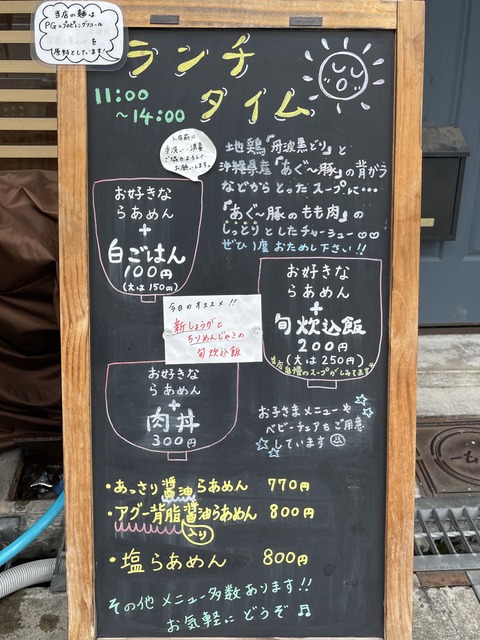 当店の麺は
を
原料としています!
ランチ
タイム
11:00
~14:00
入店前に
手洗い・消毒
ご協力よろしく
お願いします。
地鶏『丹波黒どり』と
沖縄県産『あぐ~豚』の背がら
などからとったスープに…
『あぐ~豚のもも肉』の
しっとりとしたチャーシュー
ぜひ1度おためし下さい!!
お好きな
らあめん
+
白ごはん
100円
(大は150円)
お好きな
らあめん
+
旬炊込飯
200円
(大は250円)
当店自慢のスープがしみてます
今日のオススメ!!
新しょうがと
ちりめんじゃこの
旬炊込飯
お好きな
らあめん
+
肉丼
300円
お子さまメニューや
ベビーチェアもご用意
しています
・あっさり醤油らあめん 770円
・アグー背脂醤油らあめん 800円
入り
・塩らあめん 800円
その他 メニュー多数あります!!
お気軽に どうぞ♫